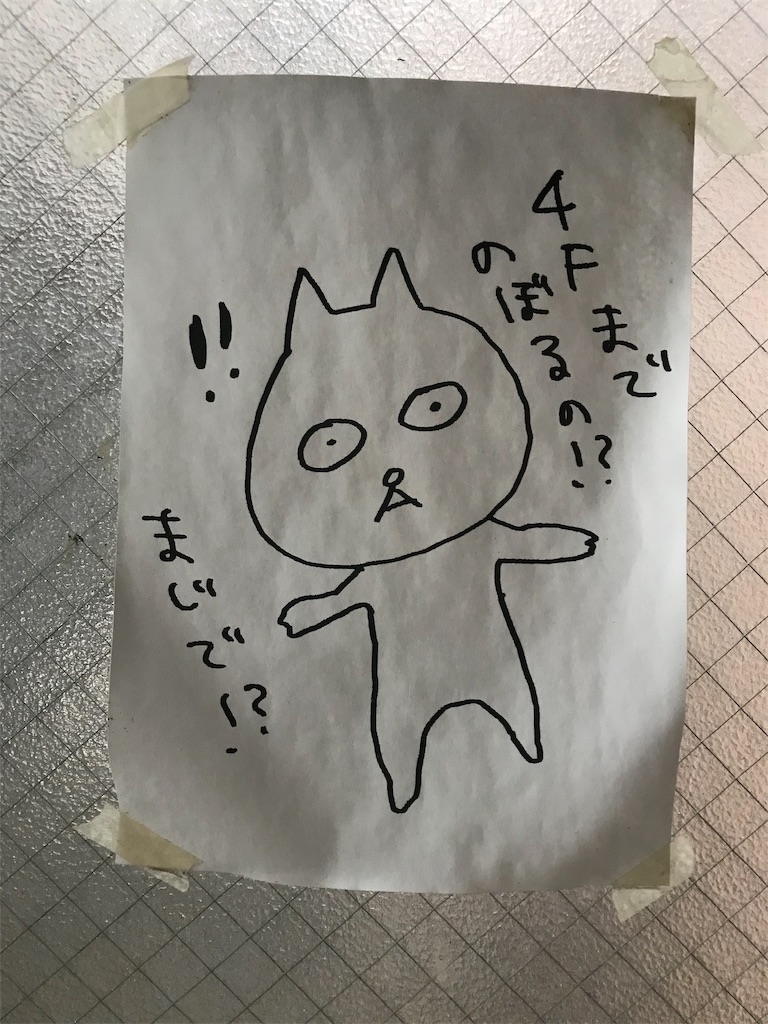 4Fまで
のぼるの!?
!!
まじで!?